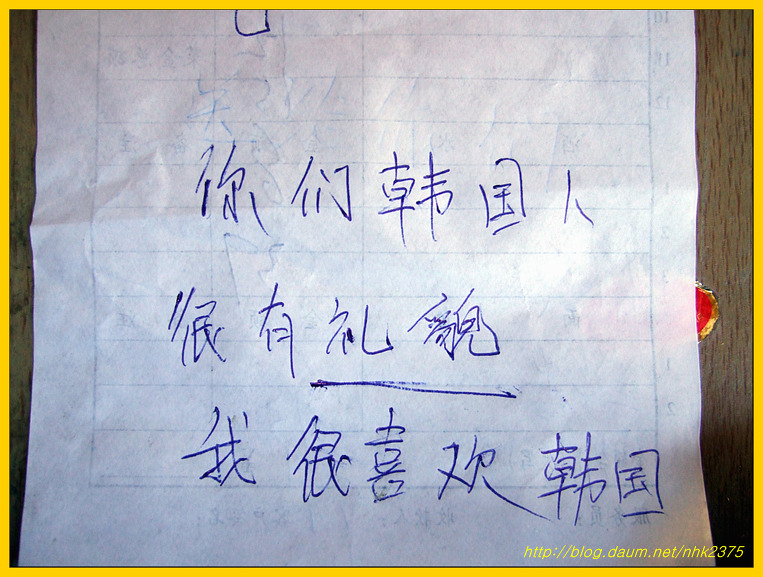 你们韩国人
很有礼貌
我很喜欢韩国
http://blog.daum.net/nhk2375